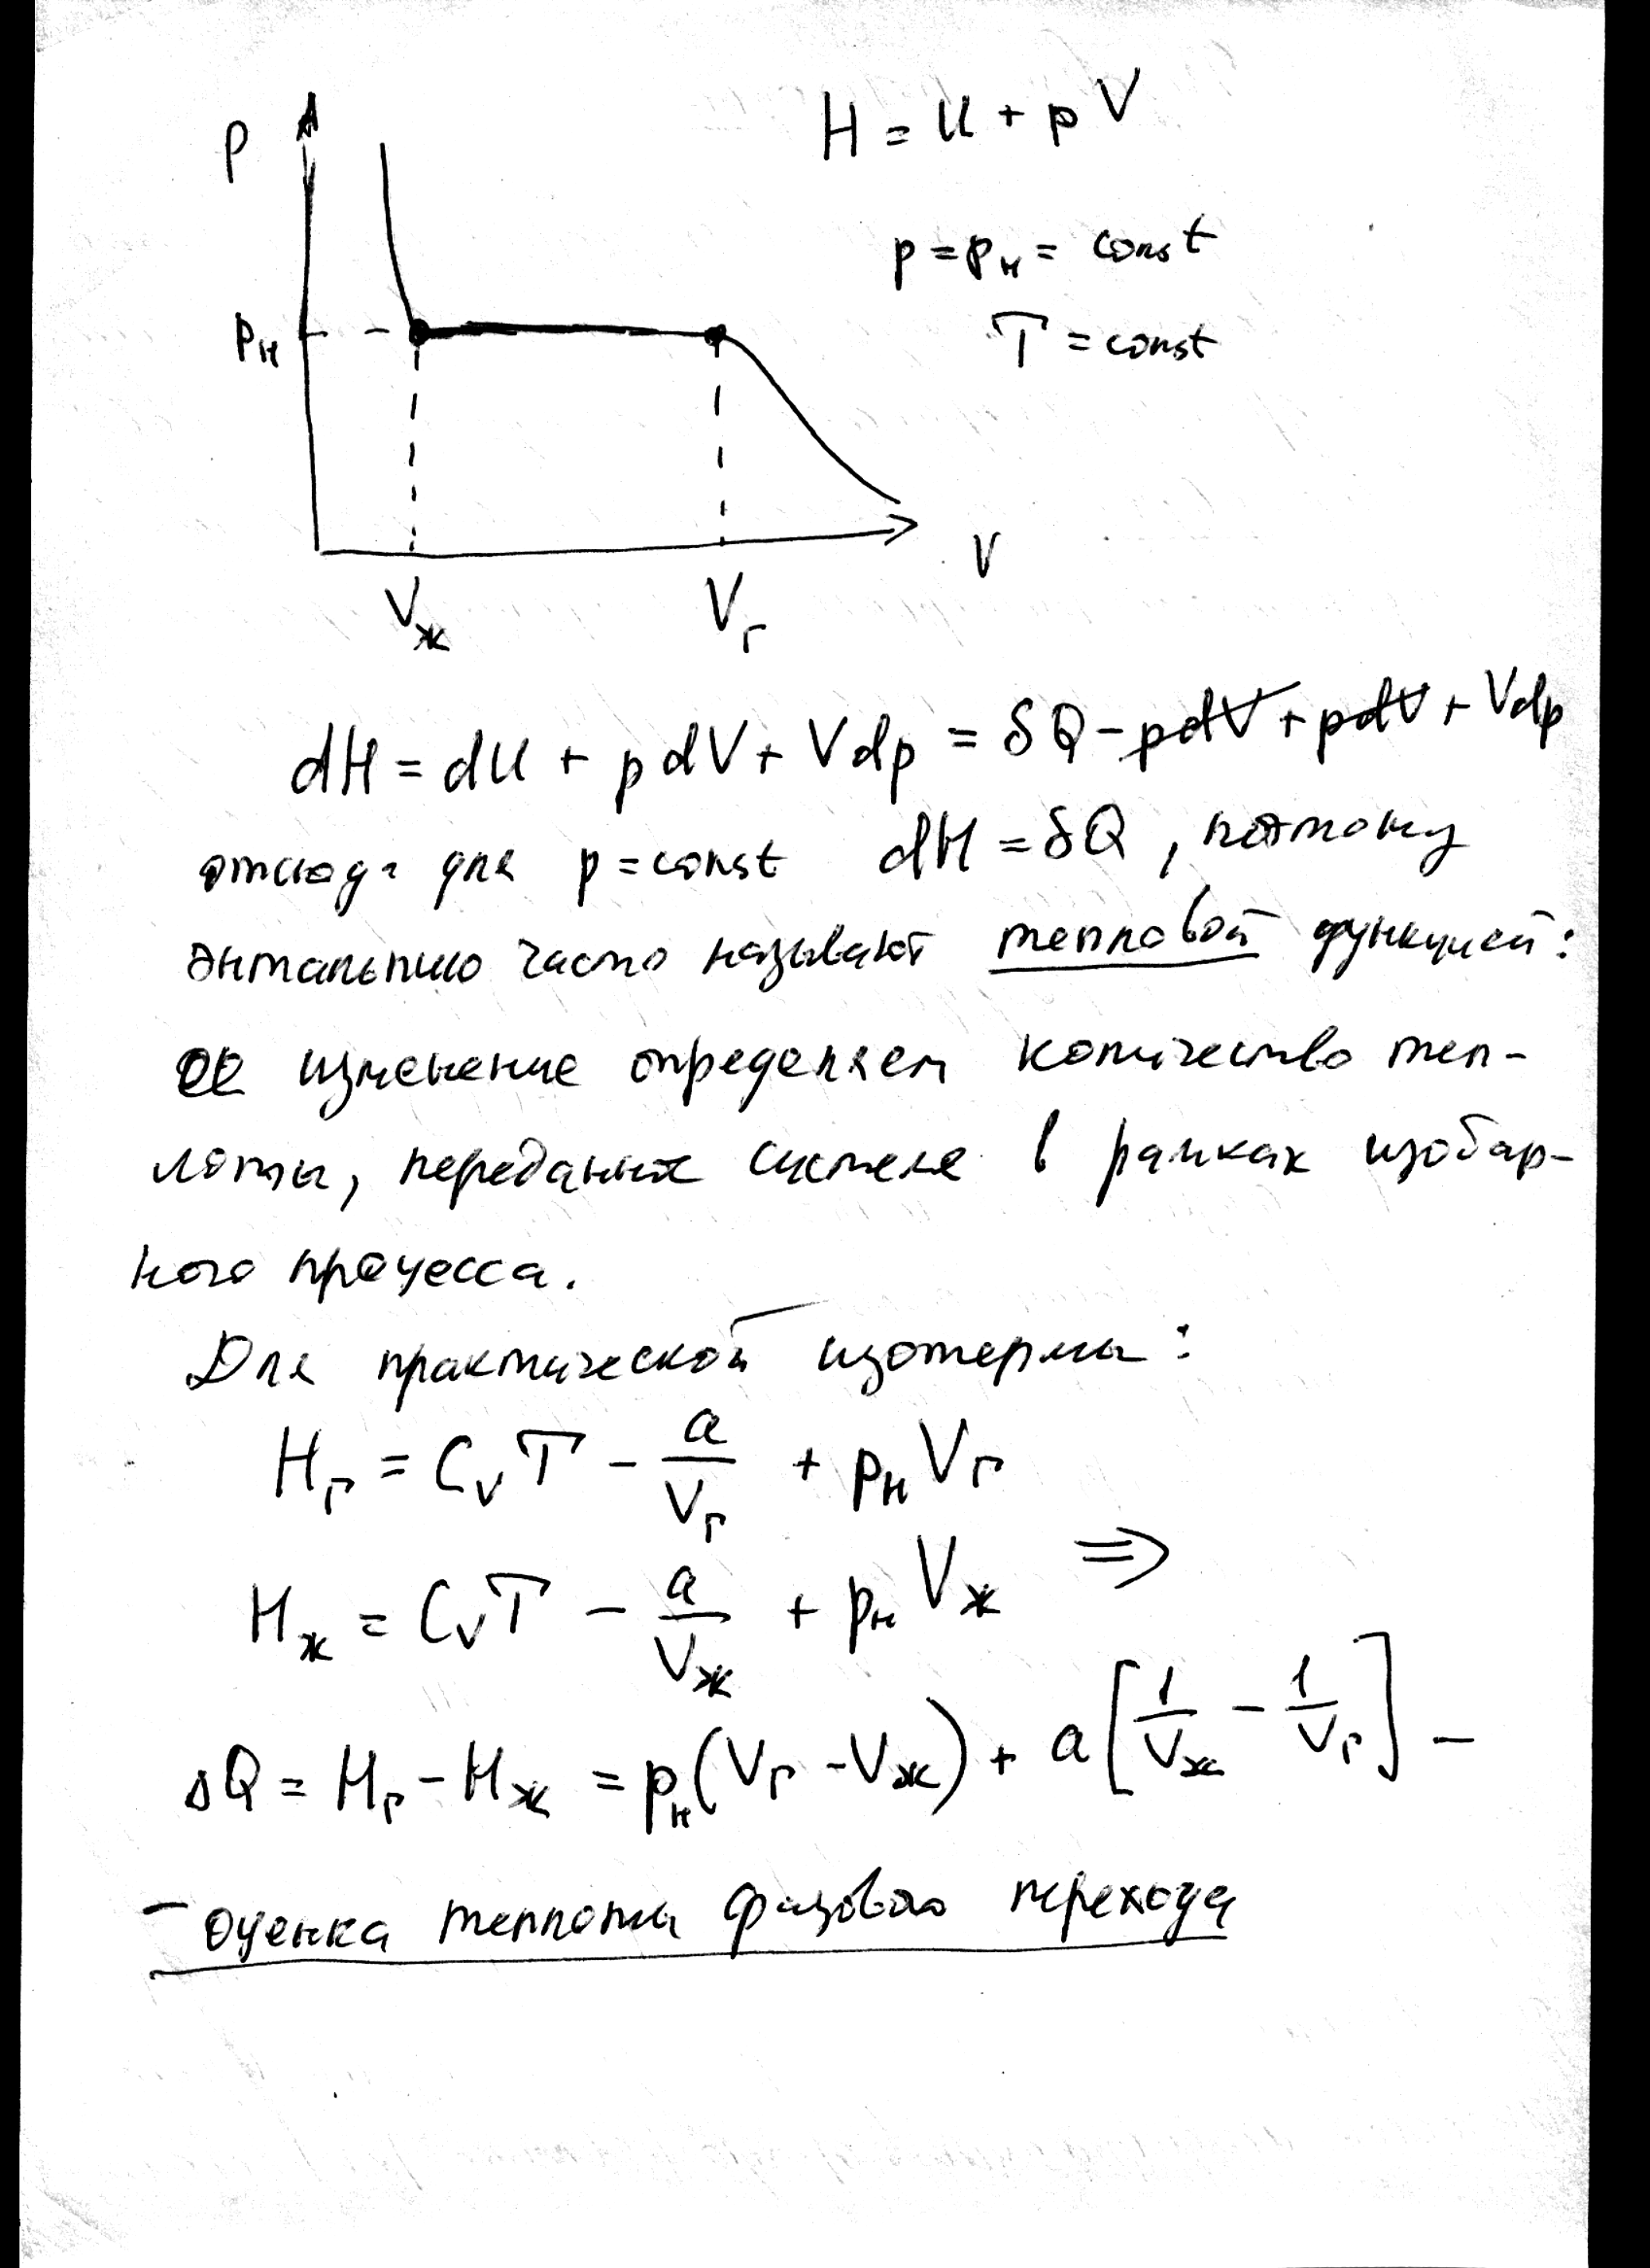 p
H = U + pV
p = pн = const
T = const
pн
V
Vж Vг
dH = dU + pdV + Vdp = δQ - pdV + pdV + Vdp
отсюда для p = const dH = δQ, поэтому
энтальпию часто называют тепловой функцией:
ее изменение определяет количество теп-
лоты, переданных системе в рамках изобар-
ного процесса.
Для практической изотермы:
Hг = CvT - a/Vг + pнVг
Hж = CvT - a/Vж + pнVж ⇒
ΔQ = Hг - Hж = pн(Vг - Vж) + a[1/Vж - 1/Vг] -
- оценка теплоты фазового перехода